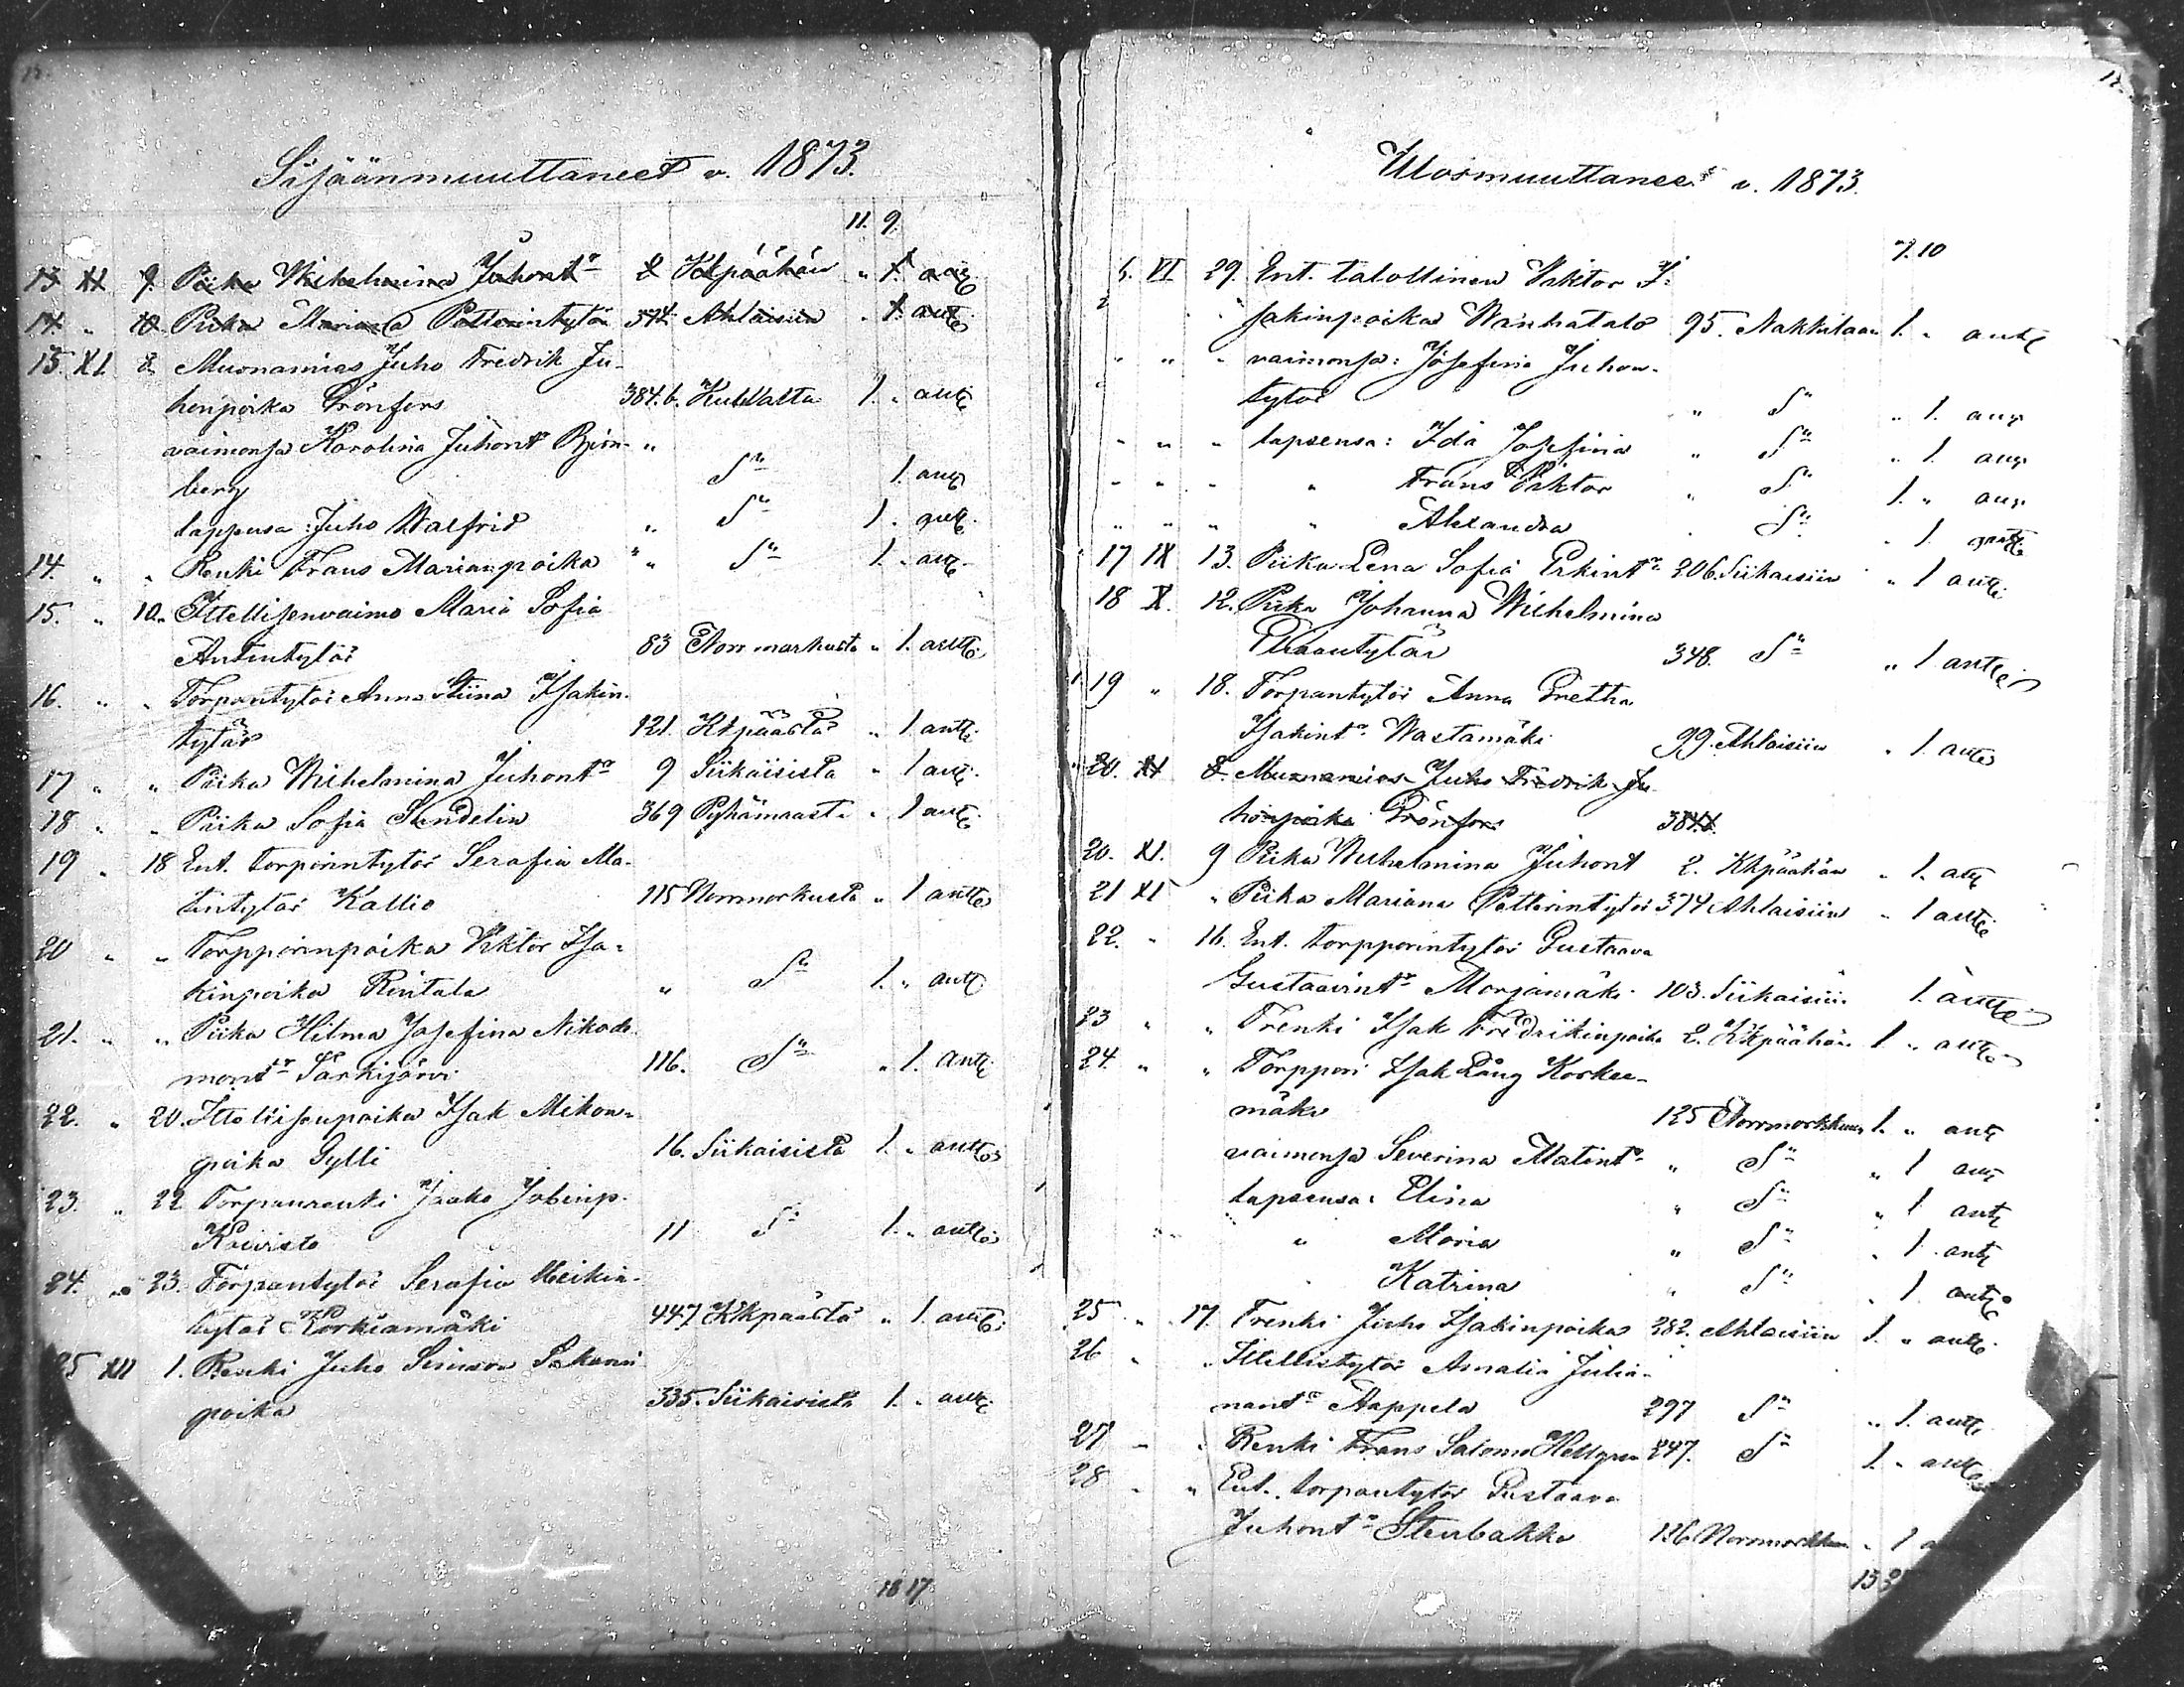 Sisäänmuuttaneet v. 1873.
11. 9.
13 XI 9. Piika Wilhelmina Juhont:r 2 Kkpäähän " 1. antt:
14 " 10. Piika Mariana Petterintytär 374 Ahlaisiin " 1. antt:
13. XI. 2. Muonamies Juho Fredrik Ju-
honpoika Grönfors 384.b. Kullalta 1. " antt:
vaimonsa Karolina Juhont:r Björn- "
berg S:n 1. antt:
lappensa: Juho Walfrid " S:n 1. antt.
14. " " Renki Frans Marianpoika " S:n 1. " antt.
15. " 10. Ittellisenvaimo Maria Sofia
Antintytär 83 Norrmarkusta " 1. antt:
16. " " Torpantytär Anna Stiina Isakin-
tytär 121. Kkpäästä " 1. antt:
17 " " Piika Wilhelmina Juhont:r 9 Siikaisista " 1 antt:
18 " " Piika Sofia Sundelin 369 Pyhämaasta " 1 antt:
19 " 18 Ent. torparintytär Serafia Ma-
tintytär Kallio 115 Norrmarkusta " 1 antt:
20 " " Torpparinpoika Viktor Isa-
kinpoika Rintala " S:n 1. " antt:
21. " " Piika Hilma Josefina Nikode-
mont:r Särkijärvi 116. S:n " 1. antt:
22. " 20. Ittellisenpoika Isak Mikon-
poika Gylli 16. Siikaisista 1. " antt:
23. " 22 Torpanrenki Jaako Jobinp.
Koivisto 11 S:n 1. " antt:
24. " 23. Torpantytär Serafia Heikin-
tytär Korkiamäki 447 Kkpäästä " 1. antt:
25 XII 1. Renki Juho Simson Sakari
poika 335. Siikaisista 1. " antt:
18 17
Ulosmuuttaneet v. 1873.
7. 10
VI 29. Ent. talollinen Viktor I-
sakinpoika Wanhatalo 95. Nakkilaan 1. " antt:
" " " vaimonsa: Josefina Juhon-
tytär " S:n " 1. ant:
" " " lapsensa: Ida Josefina " S:n " 1. ant:
" " " " Frans Viktor " S:n 1. " ant:
" " " " Alexandra " S:n " 1. antt:
17 IX 13. Piika Lena Sofia Erkint:r 206. Siikaisiin " 1 antt:
18 X. 12. Piika Johanna Wilhelmina
348. S:n " 1 antt:
19 " 18. Torpantytär Anna Gretha
Isakint:r Wastamäki 99. Ahlaisiin " 1. antt:
20. XI 2. Muonamies Juho Fredrik Ju-
honpoika Grönfors 384.b.
20. XI. 9 Piika Wilhelmina Juhont 2. Kkpäähän " 1. antt:
21 XI " Piika Mariana Petterintytär 374 Ahlaisiin " 1 antt:
22. " 16. Ent. torpparintytär Gustaava
Gustaavint:r Morjamäki 103. Siikaisiin 1. antt:
23 " " Trenki Isak Fredrikinpoika 2. Kkpäähän 1 " antt:
24. " " Torppari Isak Lång Korkee-
mäki 125 Norrmarkkuun 1. " antt:
vaimonsa Severina Matint:r " S:n " 1 antt:
lapsensa: Elina " S:n " 1 antt:
" Maria " S:n " 1. antt:
" Katrina " S:n " 1 antt:
25 " 17. Trenki Juho Isakinpoika 282. Ahlaisiin 1. " antt:
26 " " Ittellistytär Amalia Julia-
nant:r Kappela 297 S:n " 1. antt:
27 " " Renki Frans Salomo Hellgren 247. S:n 1. " antt:
28 " " Ent. torpantytär Gustaava
Juhont:r Stenbakka 136 Norrmarkkuun " 1